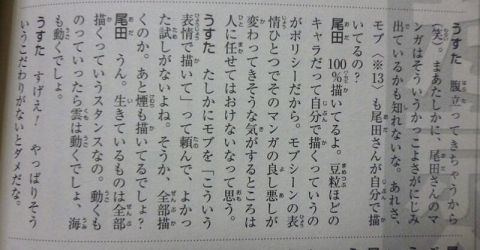 うすた　腹立ってきちゃうから
(笑)。まあたしかに、尾田さんのマ
ンガはそういうかっこよさがにじみ
出ているかも知れないな。あれさ、
モブ〈※13〉も尾田さんが自分で描
いてるの?
尾田　100%描いてるよ。豆粒ほどの
キャラだって自分で描くっていうの
がポリシーだから。モブシーンの表
情ひとつでそのマンガの良し悪しが
変わってきそうな気がするところは
人に任せてはおけないなって思う。
うすた　たしかにモブを「こういう
表情で描いて」って頼んで、よかっ
た試しがないよね。そうか、全部描
くのか。あと煙も描いてるでしょ?
尾田　うん。生きているものは全部
描くっていうスタンスなの。動くも
のっていったら雲は動くでしょ、海
も動くでしょ。
うすた　すげえ!　やっぱりそう
いうこだわりがないとダメだな。